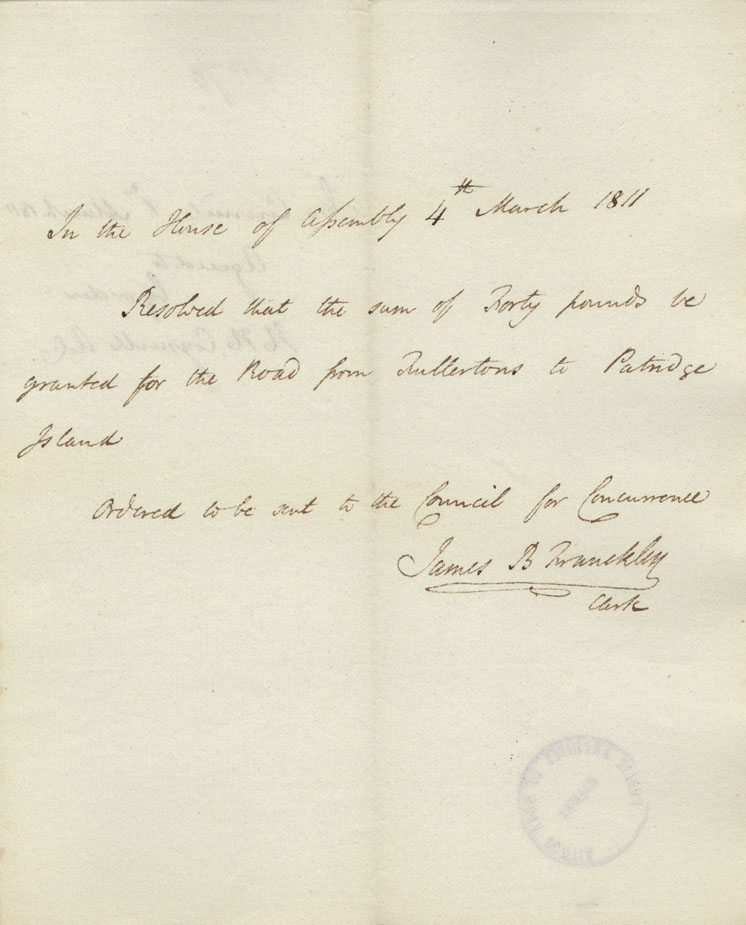 In the House of Assembly 4th March 1811
Resolved that the sum of Forty pounds be
granted for the Road from Fullertons to Patridge
Island
Ordered to be sent to the Council for Concurrence
James B Francklin
Clerk